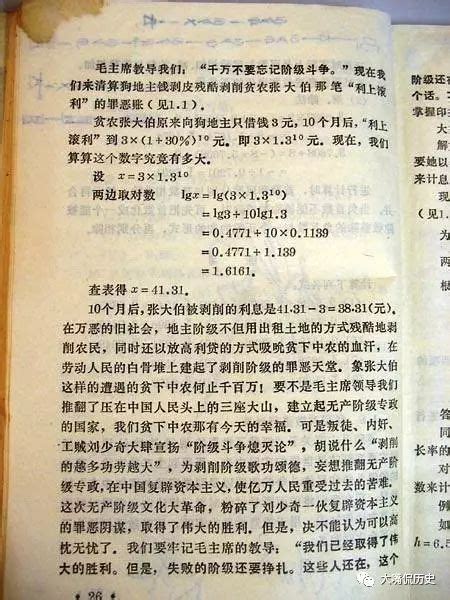 毛主席教导我们：“千万不要忘记阶级斗争。”现在我
们来清算狗地主钱剥皮残酷剥削贫农张大伯那笔“利上滚
利”的罪恶账（见1.1）。
贫农张大伯原来向狗地主只借钱3元，10个月后，“利上
滚利”到3×(1+30%)¹⁰元。即3×1.3¹⁰元。现在，我们
算算这个数字究竟有多大。
设 x=3×1.3¹⁰
两边取对数 lgx=lg(3×1.3¹⁰)
=lg3+10lg1.3
=0.4771+10×0.1139
=0.4771+1.139
=1.6161。
查表得 x=41.31。
10个月后，张大伯被剥削的利息是41.31－3=38.31(元)。
在万恶的旧社会，地主阶级不但用出租土地的方式残酷地剥
削农民，同时还以放高利贷的方式吸吮贫下中农的血汗，在
劳动人民的白骨堆上建起了剥削阶级的罪恶天堂。象张大伯
这样的遭遇的贫下中农何止千百万！要不是毛主席领导我们
推翻了压在中国人民头上的三座大山，建立起无产阶级专政
的国家，我们贫下中农那有今天的幸福。可是叛徒、内奸、
工贼刘少奇大肆宣扬“阶级斗争熄灭论”，胡说什么“剥削
的越多功劳越大”，为剥削阶级歌功颂德，妄想推翻无产阶
级专政，在中国复辟资本主义，使亿万人民重受过去的苦难。
这次无产阶级文化大革命，粉碎了刘少奇一伙复辟资本主义
的罪恶阴谋，取得了伟大的胜利。但是，决不能认为可以高
枕无忧了。我们要牢记毛主席的教导：“我们已经取得了伟
大的胜利。但是，失败的阶级还要挣扎。这些人还在，这个
• 26 •
阶级还在
个话。
掌握印
大
解
要她以
来计息
现
(见1.
为
两
根
答
同
长率的
对
数来计
例
如
h=6.5
大嘴侃历史